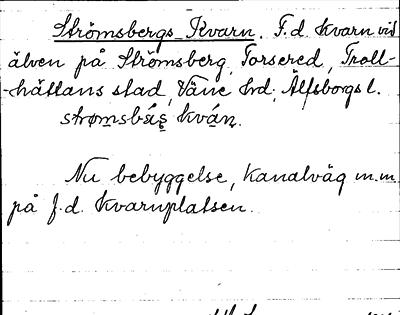 Strömsbergs Kvarn. F.d. kvarn vid
älven på Strömsberg, Torsered, Troll-
-hättans stad, Väne hd, Älfsborgs l.
strømsbás kván.
Nu bebyggelse, kanalväg m.m.
på f.d. kvarnplatsen.